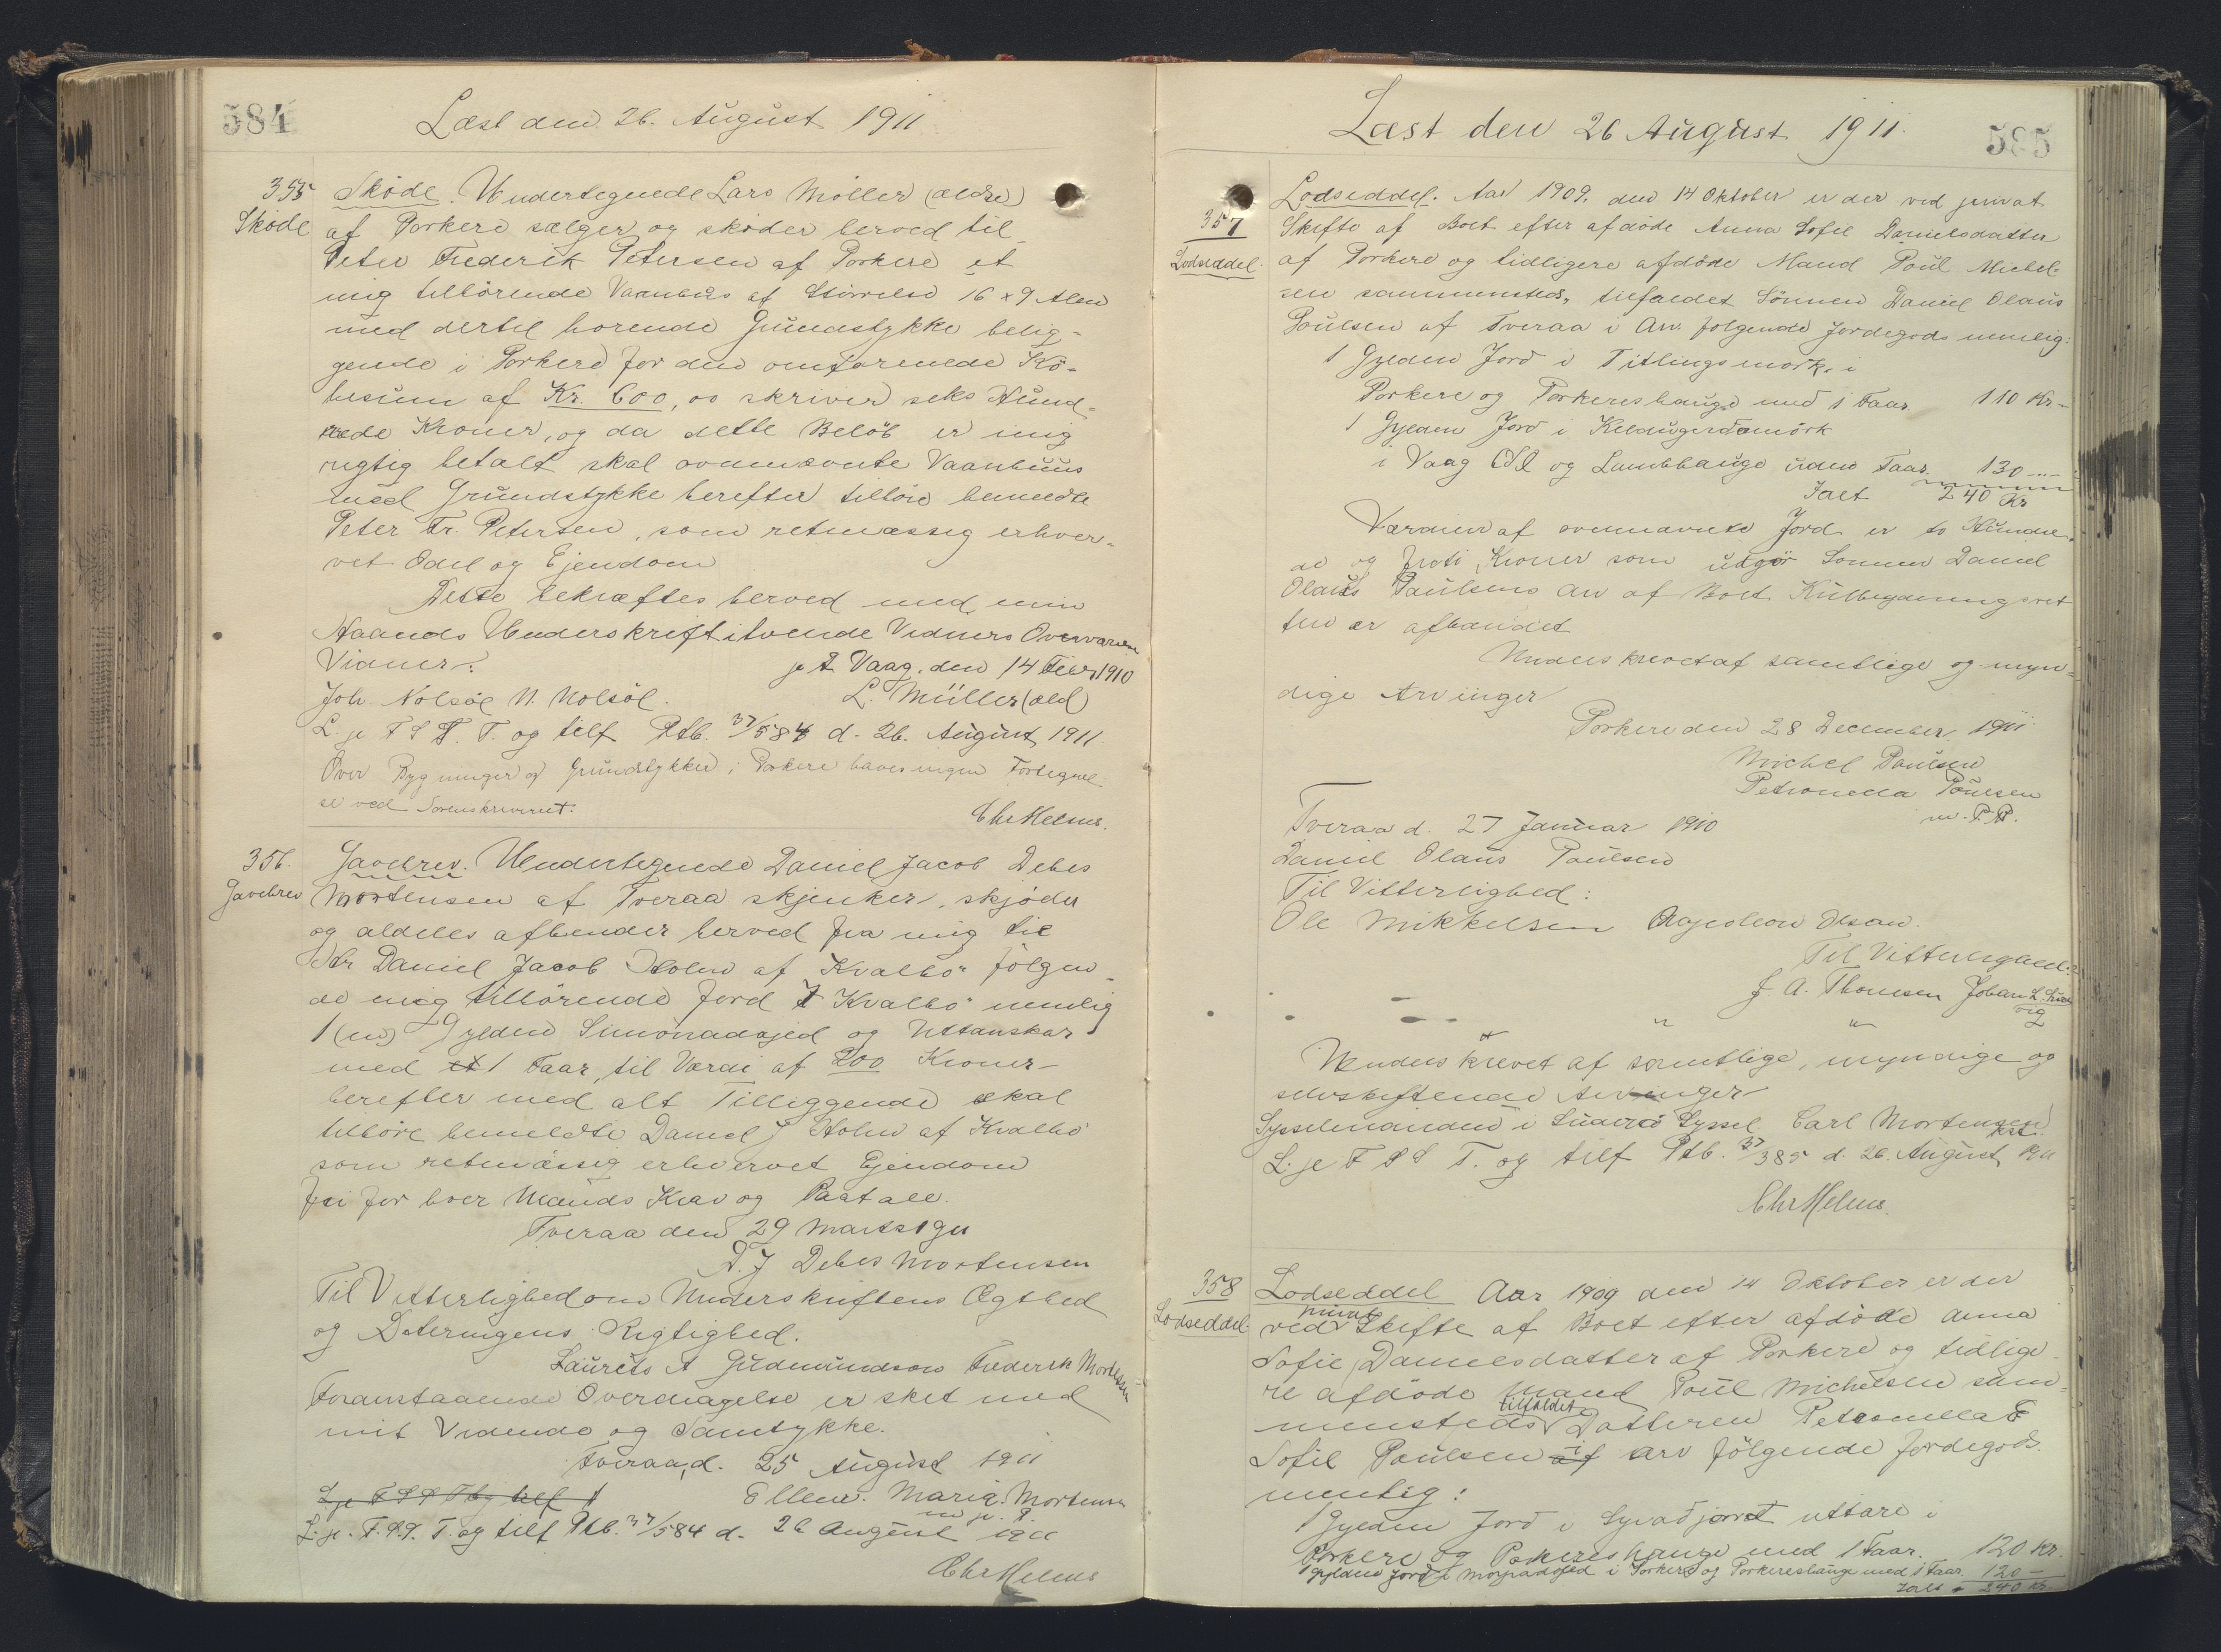 584
Læst den 26. August 1911
355
Skøde
Skøde. Undertegnede Lars Müller (ældre)
af Porkere sælger og skøder herved til
Peter Frederik Petersen af Porkere et
mig tilhörende Vaanhus af Störrelse 16 x 9 Alen
med dertil hörende Grundstykke belig-
gende i Porkere for den omforenede Kö-
besum af Kr. 600,00 skriver seks Hund-
rede Kroner, og da dette Belöb er mig
rigtig betalt skal ovennævnte Vaanhuus
med Grundstykke herefter tilhöre bemeldte
Peter Fr. Petersen, som retmæssig erhver-
vet Odel og Ejendom
Dette bekræftes herved med min
Haands Underskrift i tvende Vidners Overværelse
Vidner:
p t Vaag, den 14 Febr 1910
Joh. Nolsøe N. Nolsöe.
L. Müller (æld)
L. p F S P. T. og tilf Ptb. 37/584 d. 26. August 1911.
Over Bygninger og Grundstykker i Porkere haves ingen Fortegnel
se ved Sorenskriveriet.
Chr Helms.
356.
Gavebrev
Gavebrev. Undertegnede Daniel Jacob Debes
Mortensen af Tveraa skjenker, skjöder
og aldeles afhender herved fra mig til
Hr Daniel Jacob Holm af Kvalbö fölgen-
de mig tilhörende Jord i Kvalbö nemlig
1 (en) Gylden Simonadsjed og Uttanskar
med et 1 Faar, til Værdi af 200 Kroner-
herefter med alt Tilliggende skal
tilhöre bemeldte Daniel J Holm af Kvalbö
som retmæssig erhvervet Ejendom
fri for hver Mands Krav og Paatale.
Tveraa den 29 Marts 1911
D. J Debes Mortensen
Til Vitterlighed om Underskriftens Ægthed
og Dateringens Rigtighed.
Laurits A Gudmundson Frederik Mortensen
Foranstaaende Overdragelse er sket med
mit Vidende og Samtykke.
Tveraa, d. 25 August 1911
L. p F S P T og tilf
Ellen. Maria. Mortensen
m. p. P.
L. p. F. S. P. T. og tilf Ptb. 37/584 d. 26 August 1911
Chr Helms
Læst den 26 August 1911.
585
357
Lodseddel.
Lodseddel. Aar 1909. den 14 Oktober er der ved privat
Skifte af Boet efter afdöde Anna Sofie Danielsdatter
af Porkere og tidligere afdöde Mand Poul Michel-
sen sammensteds, tilfaldet Sönnen Daniel Olaus
Poulsen af Tveraa i Arv følgende Jordegods nemlig:
1 Gylden Jord i Titlingsmørk, i
Porkere og Porkereshauge med 1 Faar 110 Kr-
1 Gylden Jord i Keldugerdsmörk
i Vaag Ell og Lambhauge uden Faar. 130 ----
Ialt 240 Kr
Værdien af ovennævnte Jord er to Hundre-
de og firti Kroner som udgör Sönnen Daniel
Olaus Paulsens Arv af Boet Kulbrydningsret
ten er afhændet
Underskrevet af samtlige og myn-
dige Arvinger
Porkere den 28 December 1911
Michel Poulsen
Petronella Poulsen
m. P. P.
Tveraa d. 27 Januar 1910
Daniel Olaus Poulsen
Til Vitterlighed:
Ole Mikkelsen Olsen.
Til Vitterlighed:
J. A. Thomsen Johan L.
" "
Underskrevet af samtlige, myndige og
selvskiftende Arvinger
Sysselmanden i Suderö Syssel Carl Mortensen
kst.
L. p F S P T. og tilf Ptb. 37/385 d. 26. August 1911
Chr Helms.
358
Lodseddel.
Lodseddel Aar 1909 den 14 Oktober er der
ved privat Skifte af Boet efter afdöde Anna
Sofie Danielsdatter af Porkere og tidlige-
re afdöde Mand Poul Michelsen sam-
mensteds tilfaldet Datteren Petronella E
Sofie Poulsen af i arv fölgende Jordegods
nemlig:
1 Gylden Jord i uttare i
Porkere og Porkereshauge med 1 Faar. 120 Kr.
1 Gylden Jord i i Porkere og Porkereshauge med 1 Faar. 120 -
Ialt 240 Kr.